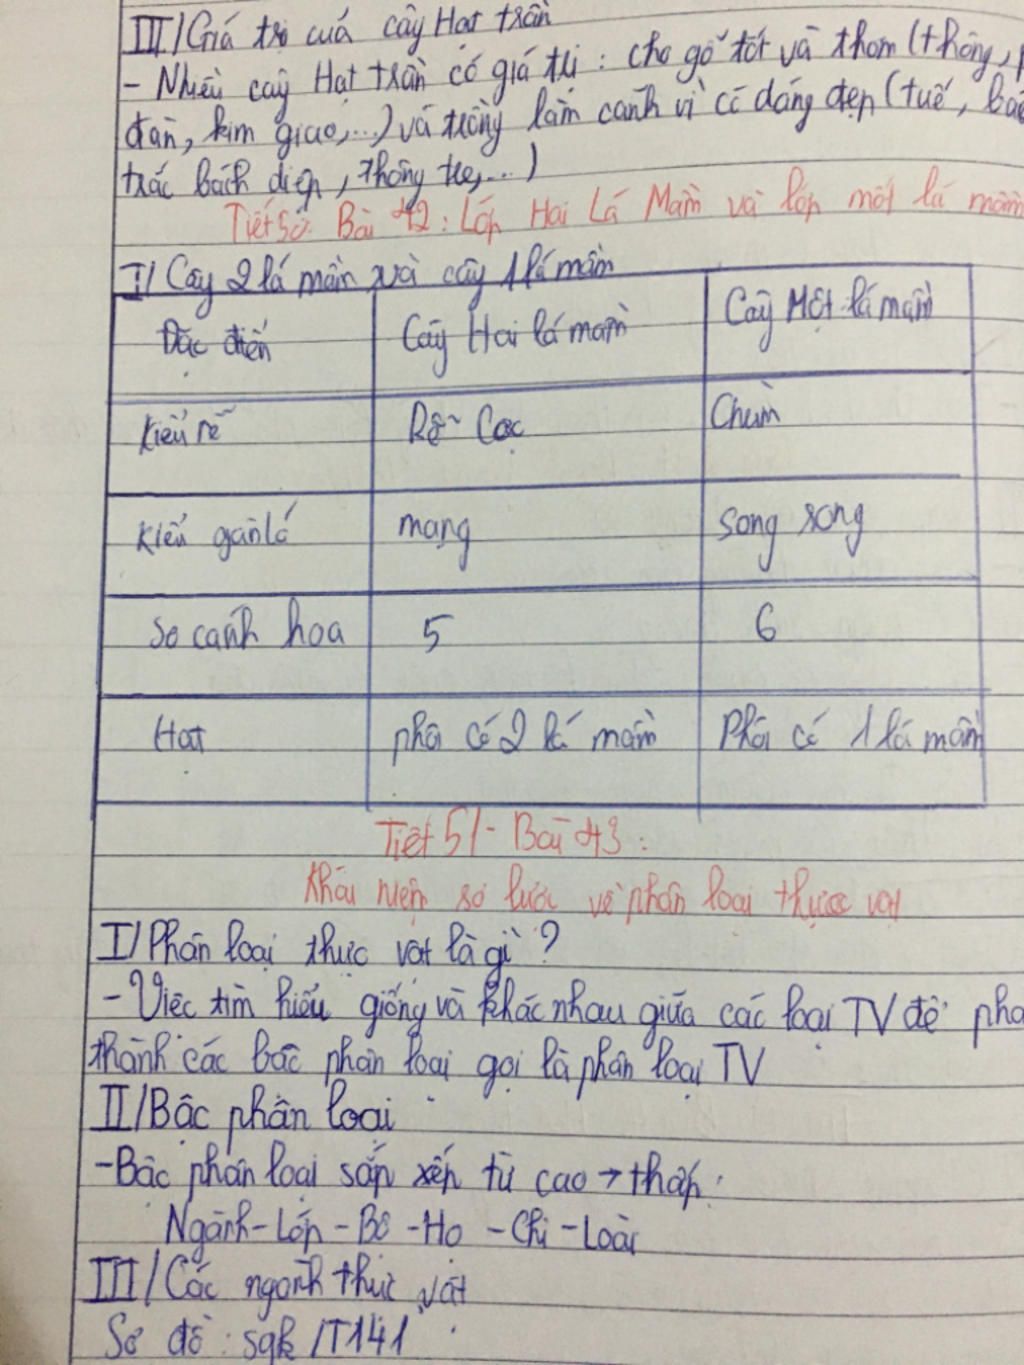 III/ Giá trị của cây Hạt trần
- Nhiều cây Hạt trần có giá trị: cho gỗ tốt và thơm (thông,
đàn, kim giao,...) và trồng làm cảnh vì có dáng đẹp (tuế,
trắc bách diệp, thông tre,...)
Tiết 50: Bài 42: Lớp Hai Lá Mầm và lớp một lá mầm
I/ Cây 2 lá mầm và cây 1 lá mầm
Đặc điểm Cây Hai lá mầm Cây Một lá mầm
Kiểu rễ Rễ Cọc Chùm
Kiểu gân lá mạng Song song
Số cánh hoa 5 6
Hạt phôi có 2 lá mầm Phôi có 1 lá mầm
Tiết 51 - Bài 43:
Khái niệm sơ lược về phân loại thực vật
I/ Phân loại thực vật là gì?
- Việc tìm hiểu giống và khác nhau giữa các loại TV để
thành các bậc phân loại gọi là phân loại TV
II/ Bậc phân loại
- Bậc phân loại sắp xếp từ cao → thấp:
Ngành - Lớp - Bộ - Họ - Chi - Loài
III/ Các ngành thực vật
Sơ đồ: sgk /T141